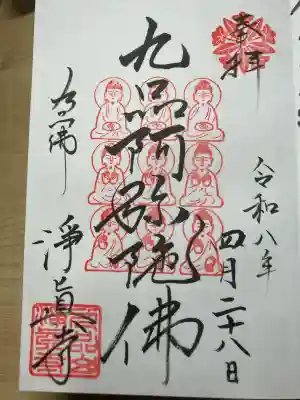 奉拝
令和八年
四月二十八日
九品阿弥陀佛
九品佛
淨眞寺